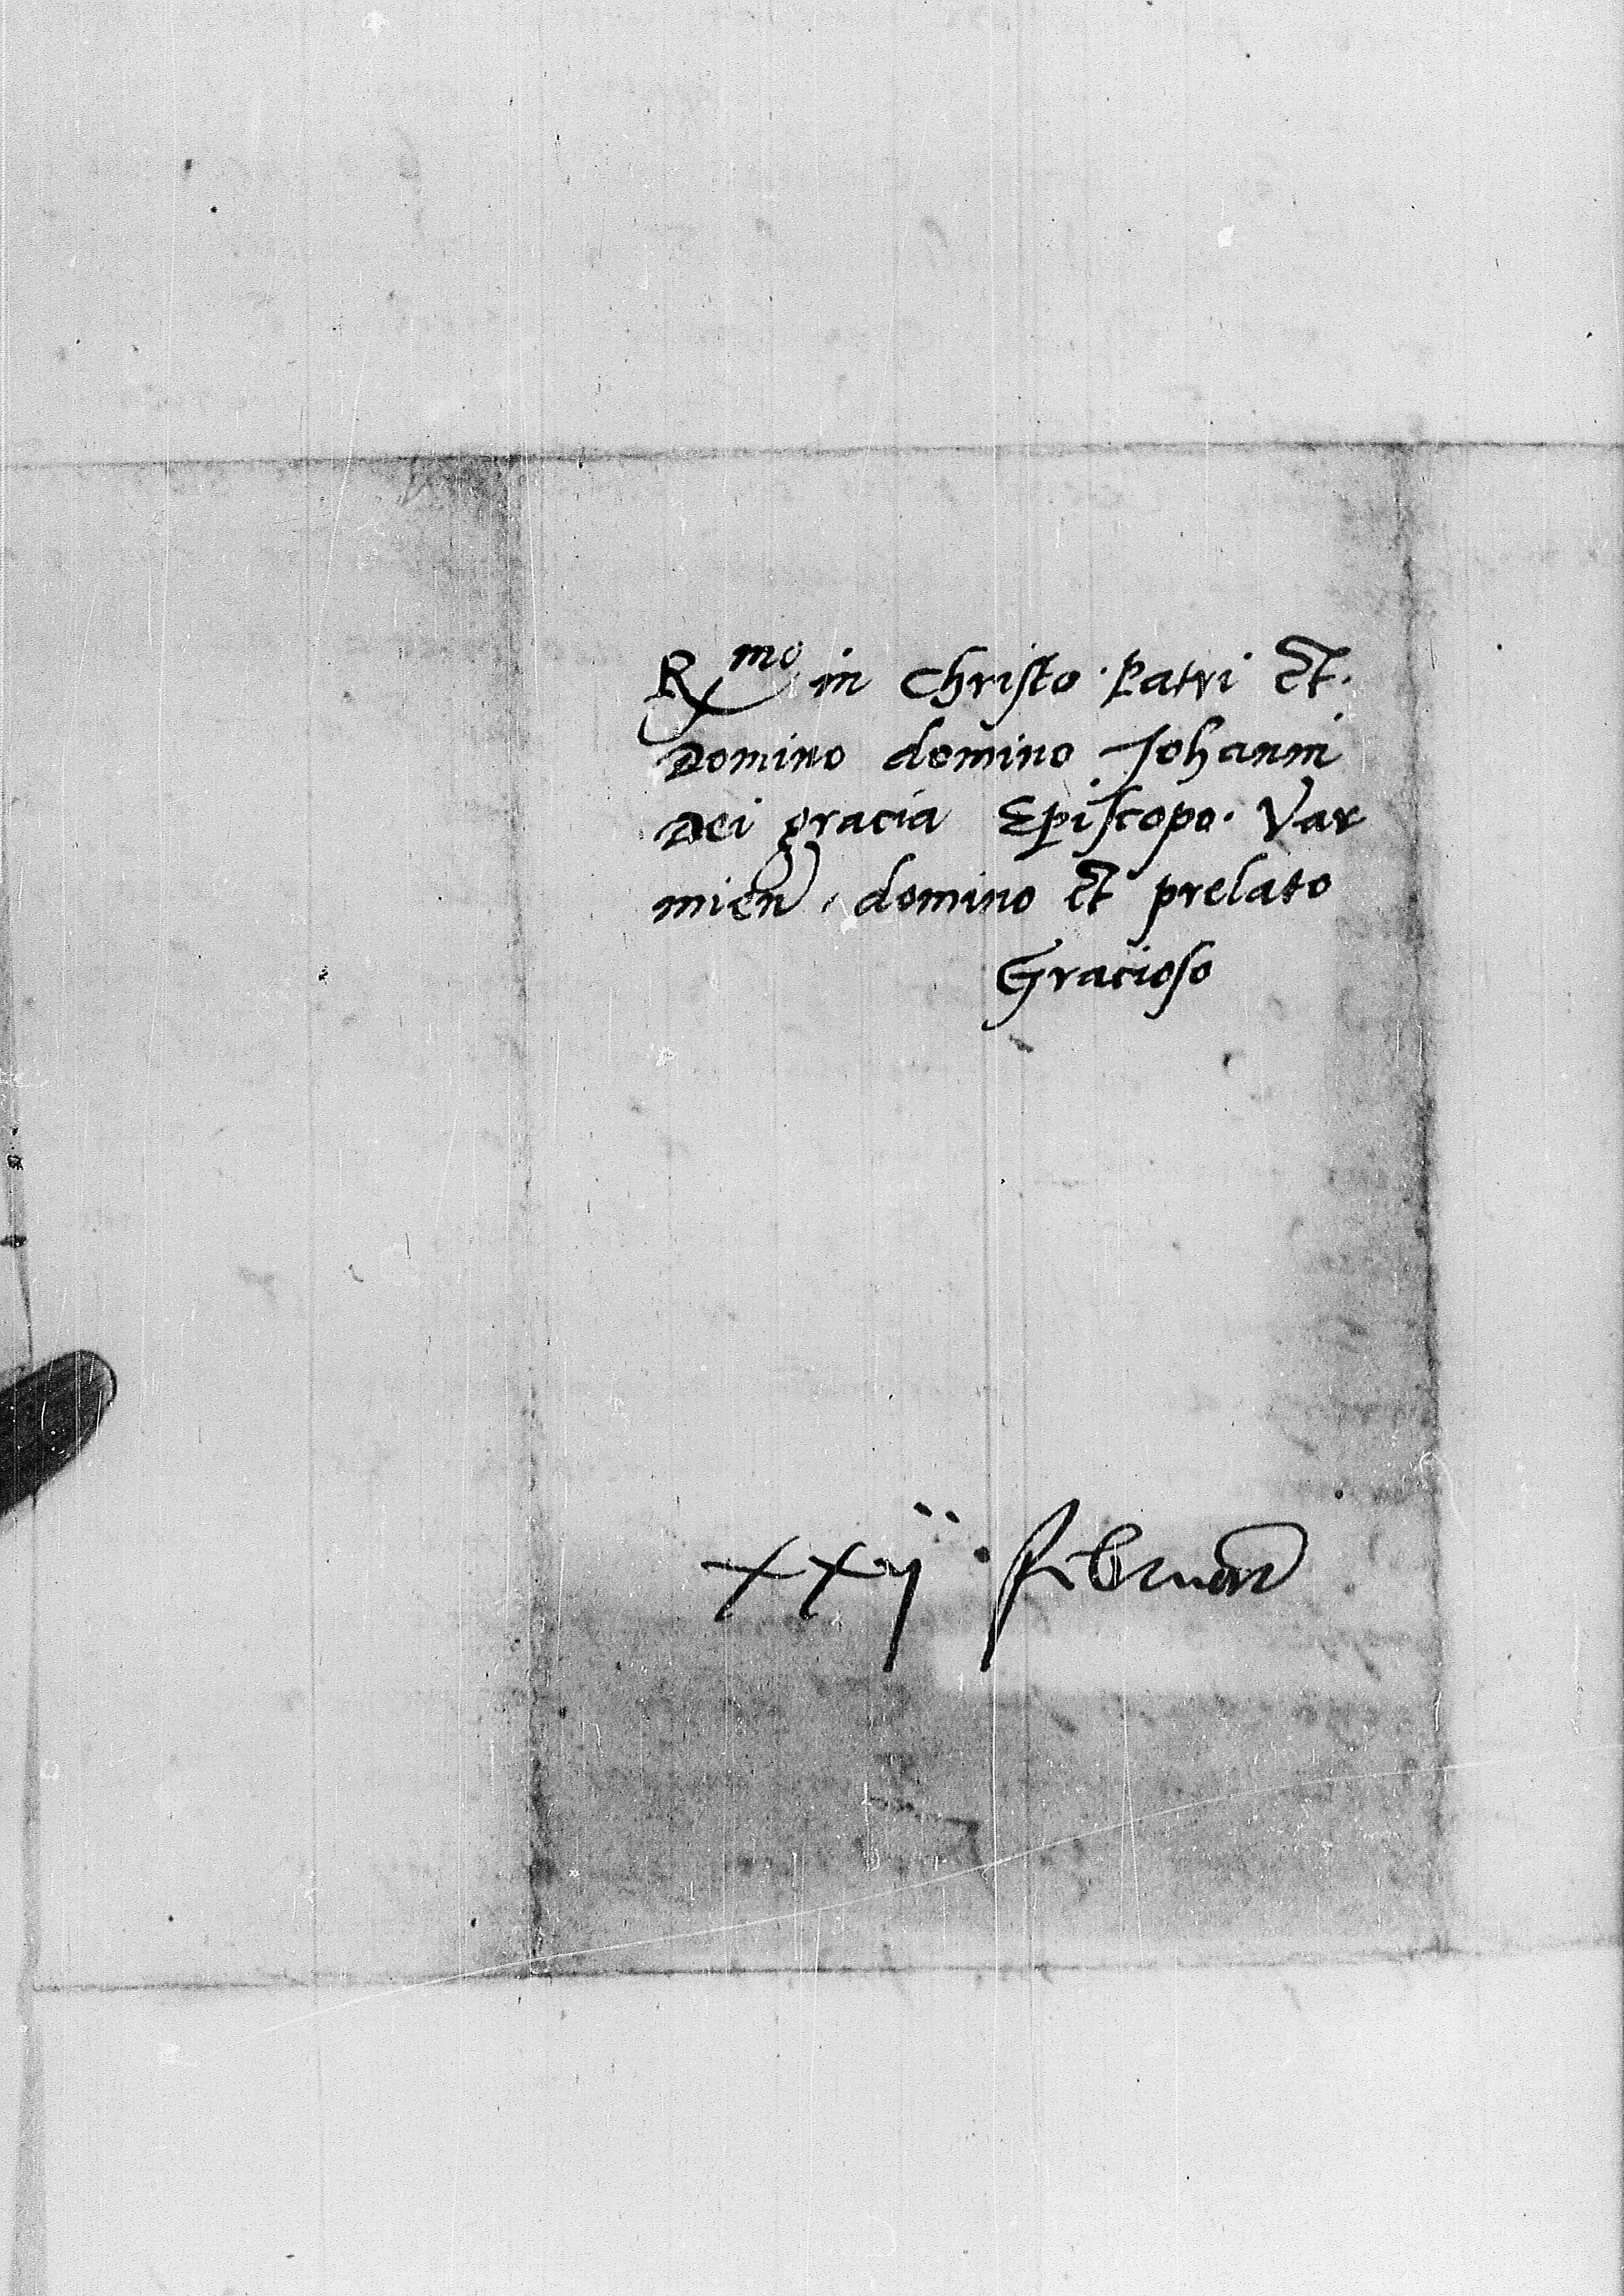 Rmo in Christo Patri et.
Domino domino Johanni
Dei gracia Episcopo. Var
mien, domino et prelato
Gracioso
xxij februar